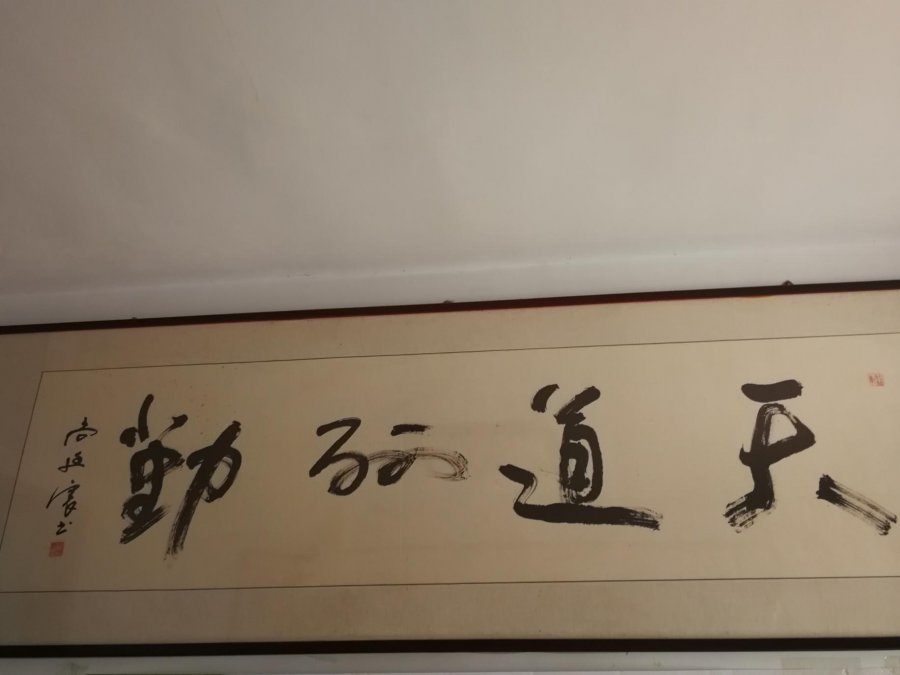 天道酬勤
书